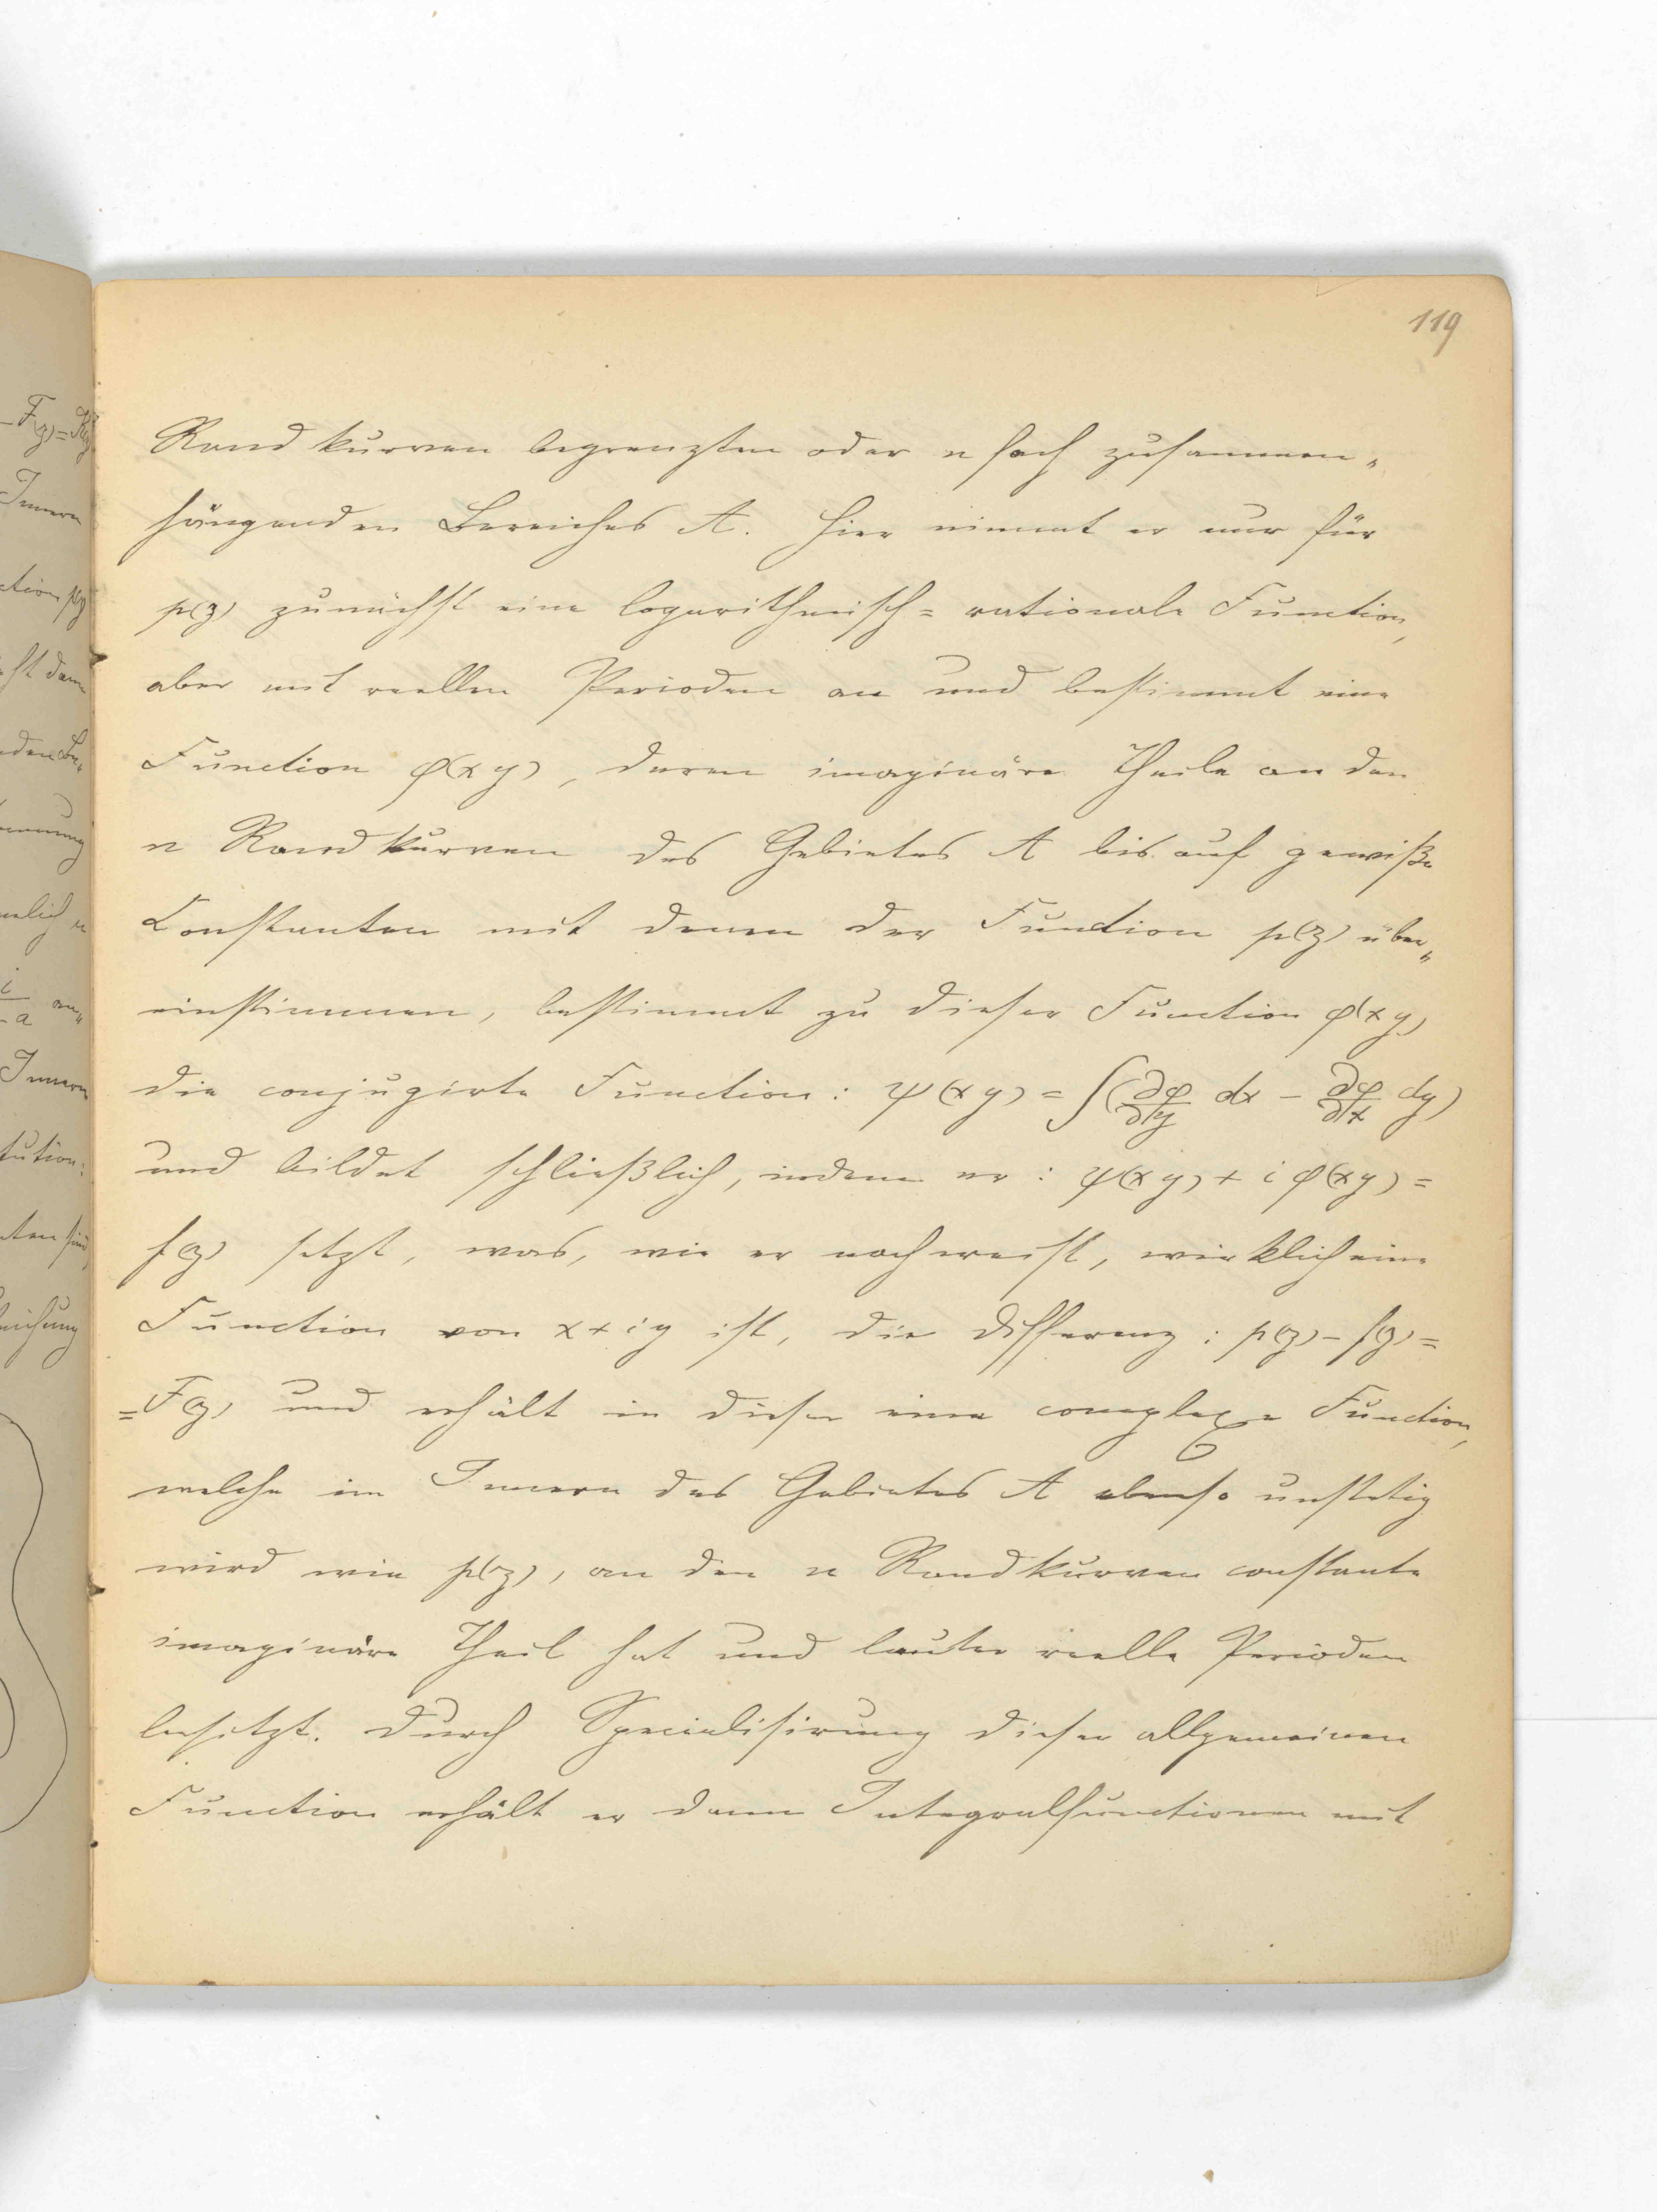 119
Randkurven begrenzten oder n fach zusammen„
hängenden Bereiches A. Hier nimmt er nur für
p(z) zunächst eine logarithmisch = rationale Function,
aber mit reellen Perioden an und bestimmt eine
Function φ(x y), deren imaginäre Theile an den
n Randkurven des Gebietes A bis auf gewiße
Constanten mit denen der Function p(z) über„
einstimmen, bestimmt zu dieser Function φ(x y)
die conjugirte Function: ψ(x y) = ∫(∂φ/∂y dx − ∂φ/∂x dy)
und bildet schließlich, indem er: ψ(x y) + i φ(x y) =
f(z) setzt, was, wie er nachweist, wirklich eine
Function von x + iy ist, die Differenz: p(z) − f(z) =
= F(z) und erhält in dieser eine complexe Function,
welche im Innern des Gebietes A ebenso unstetig
wird wie p(z), an den n Randkurven constante
imaginäre Theil hat und lauter reelle Perioden
besitzt. Durch Specialisirung dieser allgemeinen
Function erhält er dann Integralfunctionen mit